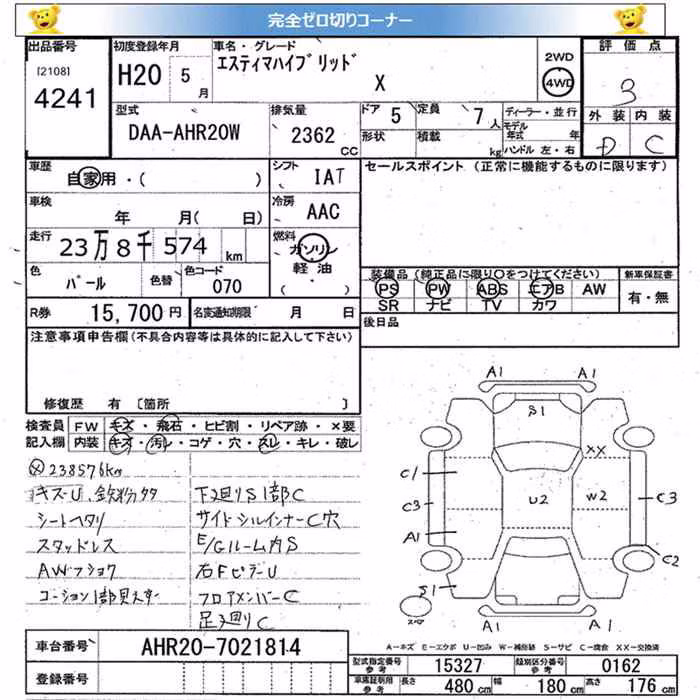 完全ゼロ切りコーナー
出品番号
[2108]
4241
初度登録年月
H20 5月
車名・グレード
エスティマハイブリッド
X
2WD
4WD
評価点
3
外装 内装
D C
型式
DAA-AHR20W
排気量
2362 CC
ドア 5
定員 7人
形状
積載 kg
ディーラー・並行
モデル年式 年
ハンドル 左・右
車歴
自家用・( )
シフト
IAT
セールスポイント (正常に機能するものに限ります)
車検
年 月( 日)
冷房
AAC
走行
23万8千574km
燃料
ガソリン
軽油
( ・ )
色
パール
色替
色コード
070
装備品(純正品に限り○をつけてください)
PS PW ABS エアB AW
SR ナビ TV カワ
新車保証書
有・無
R券 15,700円
名変通知期限 月 日
後日品
注意事項申告欄(不具合内容等は具体的に記入して下さい)
修復歴 有 [箇所 ]
検査員記入欄
FW キズ・飛石・ヒビ割・リペア跡・×要
内装 キズ・汚レ・コゲ・穴・スレ・キレ・破レ
Ⓧ238576km
キズ・U、鉄粉タタ
シートヘタリ
スタッドレス
AWフショク
コーション1部貝スター
下廻りS1部C
サイドシルインナーC穴
E/Gルーム内S
右FピラーU
フロアメンバーC
足廻りC
A1 A1
S1
XX
C1
U2 W2
C3 C3
A1
C2
S1
スペア
A1 A1
A-キズ E-エクボ U-凹み W-補修跡 S-サビ C-腐食 XX-交換済
車台番号
AHR20-7021814
登録番号
型式指定番号
参考
15327
類別区分番号
参考
0162
車庫証明用
参考
長さ 480cm 幅 180cm 高さ 176cm